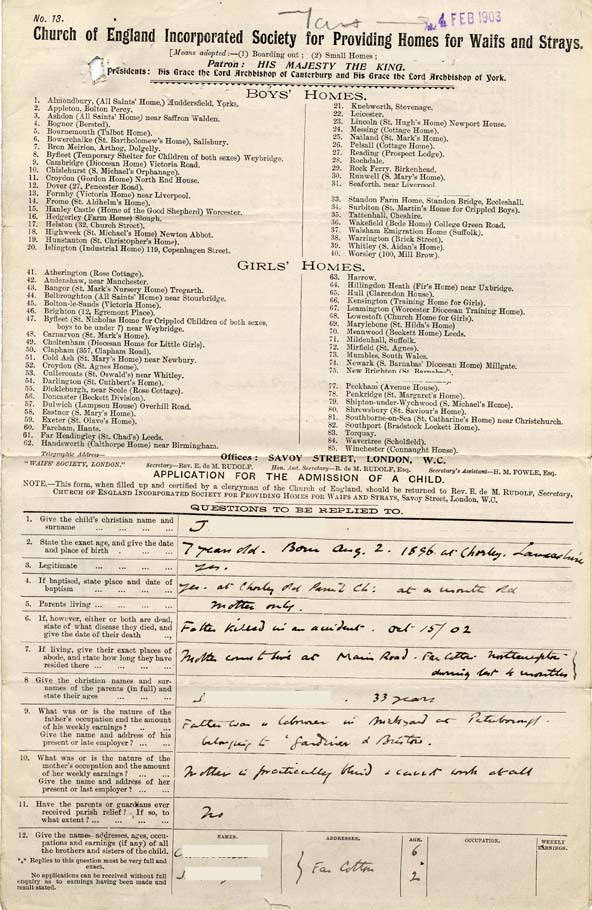 No. 13.
4 FEB 1903
Church of England Incorporated Society for Providing Homes for Waifs and Strays.
[Means adopted:—(1) Boarding out; (2) Small Homes;
Patron: HIS MAJESTY THE KING.
Presidents: His Grace the Lord Archbishop of Canterbury and His Grace the Lord Archbishop of York.
BOYS' HOMES.
1. Almondbury, (All Saints' Home,) Huddersfield, Yorks.
2. Appleton, Bolton Percy.
3. Ashdon (All Saints' Home) near Saffron Walden.
4. Bognor (Bersted).
5. Bournemouth (Talbot Home).
6. Bowerchalke (St. Bartholomew's Home), Salisbury.
7. Bron Meirion, Arthog, Dolgelly.
8. Byfleet (Temporary Shelter for Children of both sexes) Weybridge.
9. Cambridge (Diocesan Home) Victoria Road.
10. Chislehurst (S. Michael's Orphanage).
11. Croydon (Gordon Home) North End House.
12. Dover (27, Pencester Road).
13. Formby (Victoria Home) near Liverpool.
14. Frome (St. Aldhelm's Home).
15. Hanley Castle (Home of the Good Shepherd) Worcester.
16. Hedgerley (Farm Home) Slough.
17. Helston (32, Church Street).
18. Highweek (St. Michael's Home) Newton Abbot.
19. Hunstanton (St. Christopher's Home).
20. Islington (Industrial Home) 119, Copenhagen Street.
21. Knebworth, Stevenage.
22. Leicester.
23. Lincoln (St. Hugh's Home) Newport House.
24. Messing (Cottage Home).
25. Natland (St. Mark's Home).
26. Pelsall (Cottage Home).
27. Reading (Prospect Lodge).
28. Rochdale.
29. Rock Ferry, Birkenhead.
30. Runwell (S. Mary's Home).
31. Seaforth, near Liverpool
33. Standon Farm Home, Standon Bridge, Eccleshall.
34. Surbiton (St. Martin's Home for Crippled Boys).
35. Tattenhall, Cheshire.
36. Wakefield (Bede Home) College Green Road.
37. Walsham Emigration Home (Suffolk).
38. Warrington (Brick Street).
39. Whitley (S. Aidan's Home).
40. Worsley (100, Mill Brow).
GIRLS' HOMES.
41. Atherington (Rose Cottage).
42. Audenshaw, near Manchester.
43. Bangor (St. Mark's Nursery Home) Tregarth.
44. Belbroughton (All Saints' Home) near Stourbridge.
45. Bolton-le-Sands (Victoria Home).
46. Brighton (12, Egremont Place).
47. Byfleet (St. Nicholas Home for Crippled Children of both sexes,
boys to be under 7) near Weybridge.
48. Carnarvon (St. Mark's Home).
49. Cheltenham (Diocesan Home for Little Girls).
50. Clapham (357, Clapham Road).
51. Cold Ash (St. Mary's Home) near Newbury.
52. Croydon (St. Agnes Home).
53. Cullercoats (St. Oswald's) near Whitley.
54. Darlington (St. Cuthbert's Home).
55. Dickleburgh, near Scole (Rose Cottage).
56. Doncaster (Beckett Division).
57. Dulwich (Lampson House) Overhill Road.
58. Eastnor (S. Mary's Home).
59. Exeter (St. Olave's Home).
60. Fareham, Hants.
61. Far Headingley (St. Chad's) Leeds.
62. Handsworth (Calthorpe Home) near Birmingham.
63. Harrow.
64. Hillingdon Heath (Fir's Home) near Uxbridge.
65. Hull (Clarendon House).
66. Kensington (Training Home for Girls),
67. Leamington (Worcester Diocesan Training Home).
68. Lowestoft (Church Home for Girls).
69. Marylebone (St. Hilda's Home)
70. Meanwood (Beckett Home) Leeds.
71. Mildenhall, Suffolk.
72. Mirfield (St. Agnes).
73. Mumbles, South Wales.
74. Newark (S. Barnabas' Diocesan Home) Millgate.
75. New Brighton (St. Barnabas').
77. Peckham (Avenue House).
78. Penkridge (St. Margaret's Home).
79. Shipton-under-Wychwood (S. Michael's Home).
80. Shrewsbury (St. Saviour's Home).
81. Southborne-on-Sea (St. Catharine's Home) near Christchurch.
82. Southport (Bradstock Lockett Home).
83. Torquay.
84. Wavertree (Scholfield).
85. Winchester (Connaught House).
Telegraphic Address—
"WAIFS' SOCIETY, LONDON."
Offices: SAVOY STREET, LONDON, W.C.
Secretary—Rev. E. de M. RUDOLF. Hon. Aust. Secretary—R. de M. RUDOLF, Esq. Secretary's Assistant—H. M. FOWLE, Esq.
APPLICATION FOR THE ADMISSION OF A CHILD.
NOTE.—This form, when filled up and certified by a clergyman of the Church of England, should be returned to Rev. E. de M. RUDOLF, Secretary,
CHURCH OF ENGLAND INCORPORATED SOCIETY FOR PROVIDING HOMES FOR WAIFS AND STRAYS, Savoy Street, London, W.C.
QUESTIONS TO BE REPLIED TO.
1. Give the child's christian name and
surname ... ... ... ...
J
2. State the exact age, and give the date
and place of birth . ... ...
7 years old. Born Aug. 2. 1896 at Chorley, Lancashire
3. Legitimate ... ... ... ...
yes.
4. If baptised, state place and date of
baptism ... ... ... ...
yes. at Chorley Old Parish Ch: at a month old
5. Parents living ... ... ... ...
Mother only.
6. If, however, either or both are dead,
state of what disease they died, and
give the date of death ... ...
Father killed in an accident. Oct 15/02
7. If living, give their exact places of
abode, and state how long they have
resided there ... ... ... ...
Mother at Main Road. Far Cotton Northampton
during last 4 months
8 Give the christian names and sur-
names of the parents (in full) and
state their ages ... ... ...
33 years
9. What was or is the nature of the
father's occupation and the amount
of his weekly earnings? .. ...
Give the name and address of his
present or late employer? ... ...
Father was a labourer in at Peterborough.
belonging to "Gardiner &
10. What was or is the nature of the
mother's occupation and the amount
of her weekly earnings? ... ...
Give the name and address of her
present or last employer? ... ...
Mother is practically blind & cannot work at all
11. Have the parents or guardians ever
received parish relief? If so, to
what extent? ... ... ... ...
No
12. Give the names, addresses, ages, occu-
pations and earnings (if any) of all
the brothers and sisters of the child.
*** Replies to this question must be very full and
exact.
No applications can be received without full
enquiry as to earnings having been made and
result stated.
NAMES. ADDRESSES. AGE. OCCUPATION. WEEKLY EARNINGS.
C 6
Far Cotton
J. 2